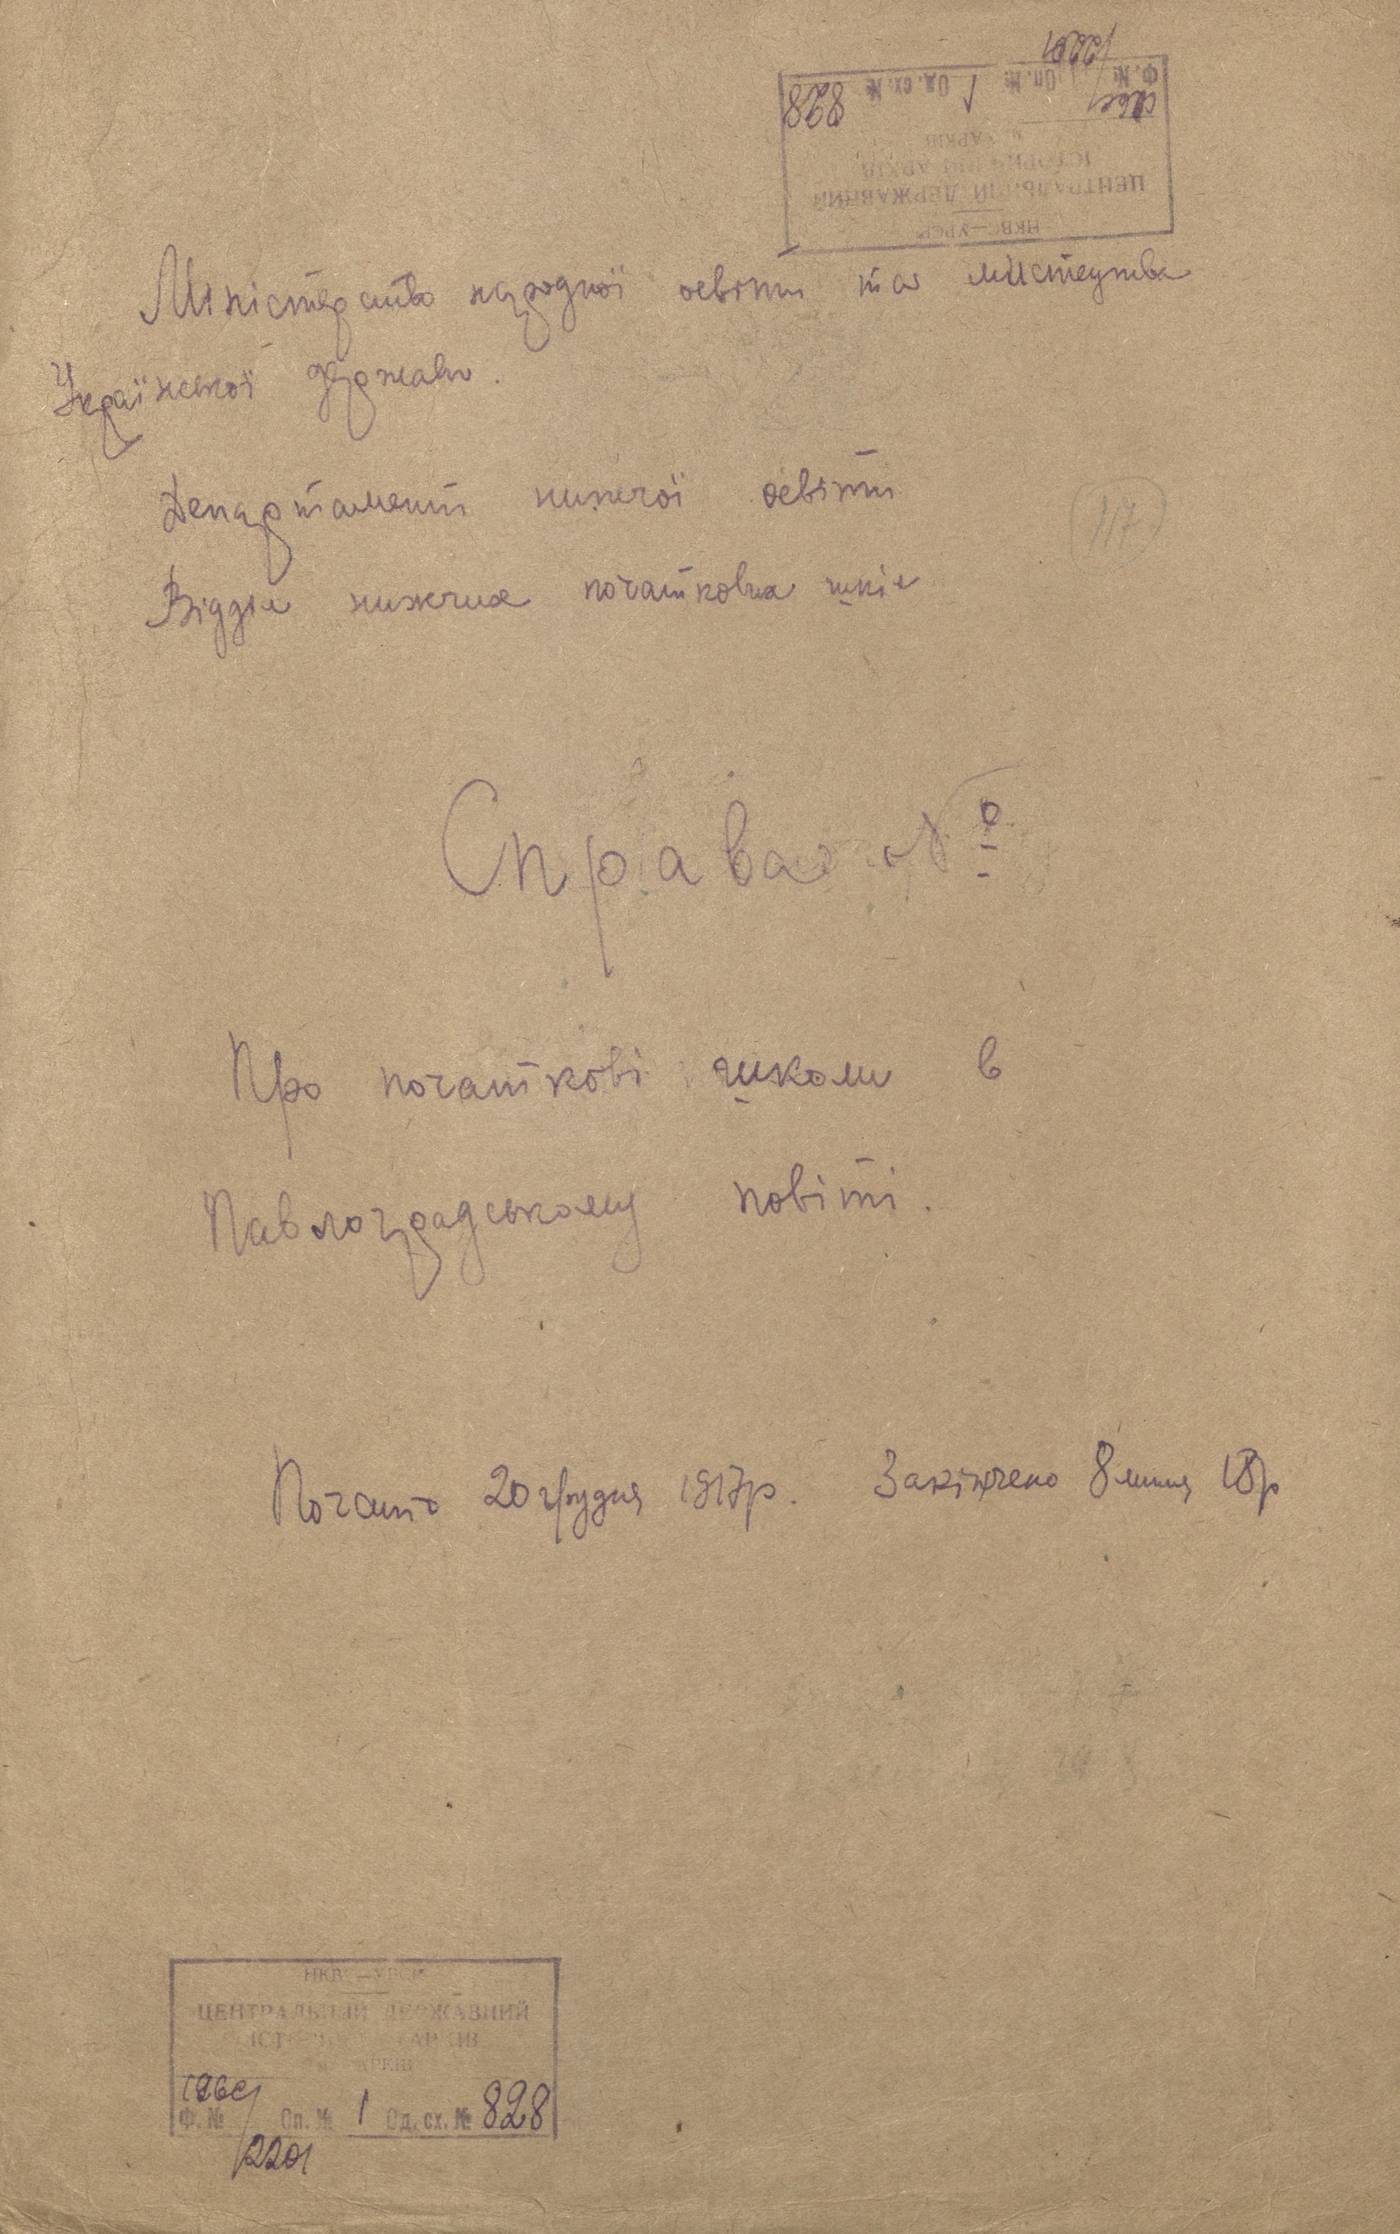 НКВС—УРСР
ЦЕНТРАЛЬНИЙ ДЕРЖАВНИЙ
ІСТОРИЧНИЙ АРХІВ
м. ХАРКІВ
Ф. № Оп. № 1 Од. сх. № 828
2201
Міністерство народної освіти та мистецтва
Української держави.
Департамент нижчої освіти
Відділ нижчих початкових шкіл
117
Справа №
Про початкові школи в
Павлоградському повіті.
Почато 20 грудня 1917р. Закінчено 8 липня 18р
НКВС—УРСР
ЦЕНТРАЛЬНИЙ ДЕРЖАВНИЙ
ІСТОРИЧНИЙ АРХІВ
м. ХАРКІВ
Ф. № Оп. № 1 Од. сх. № 828
2201